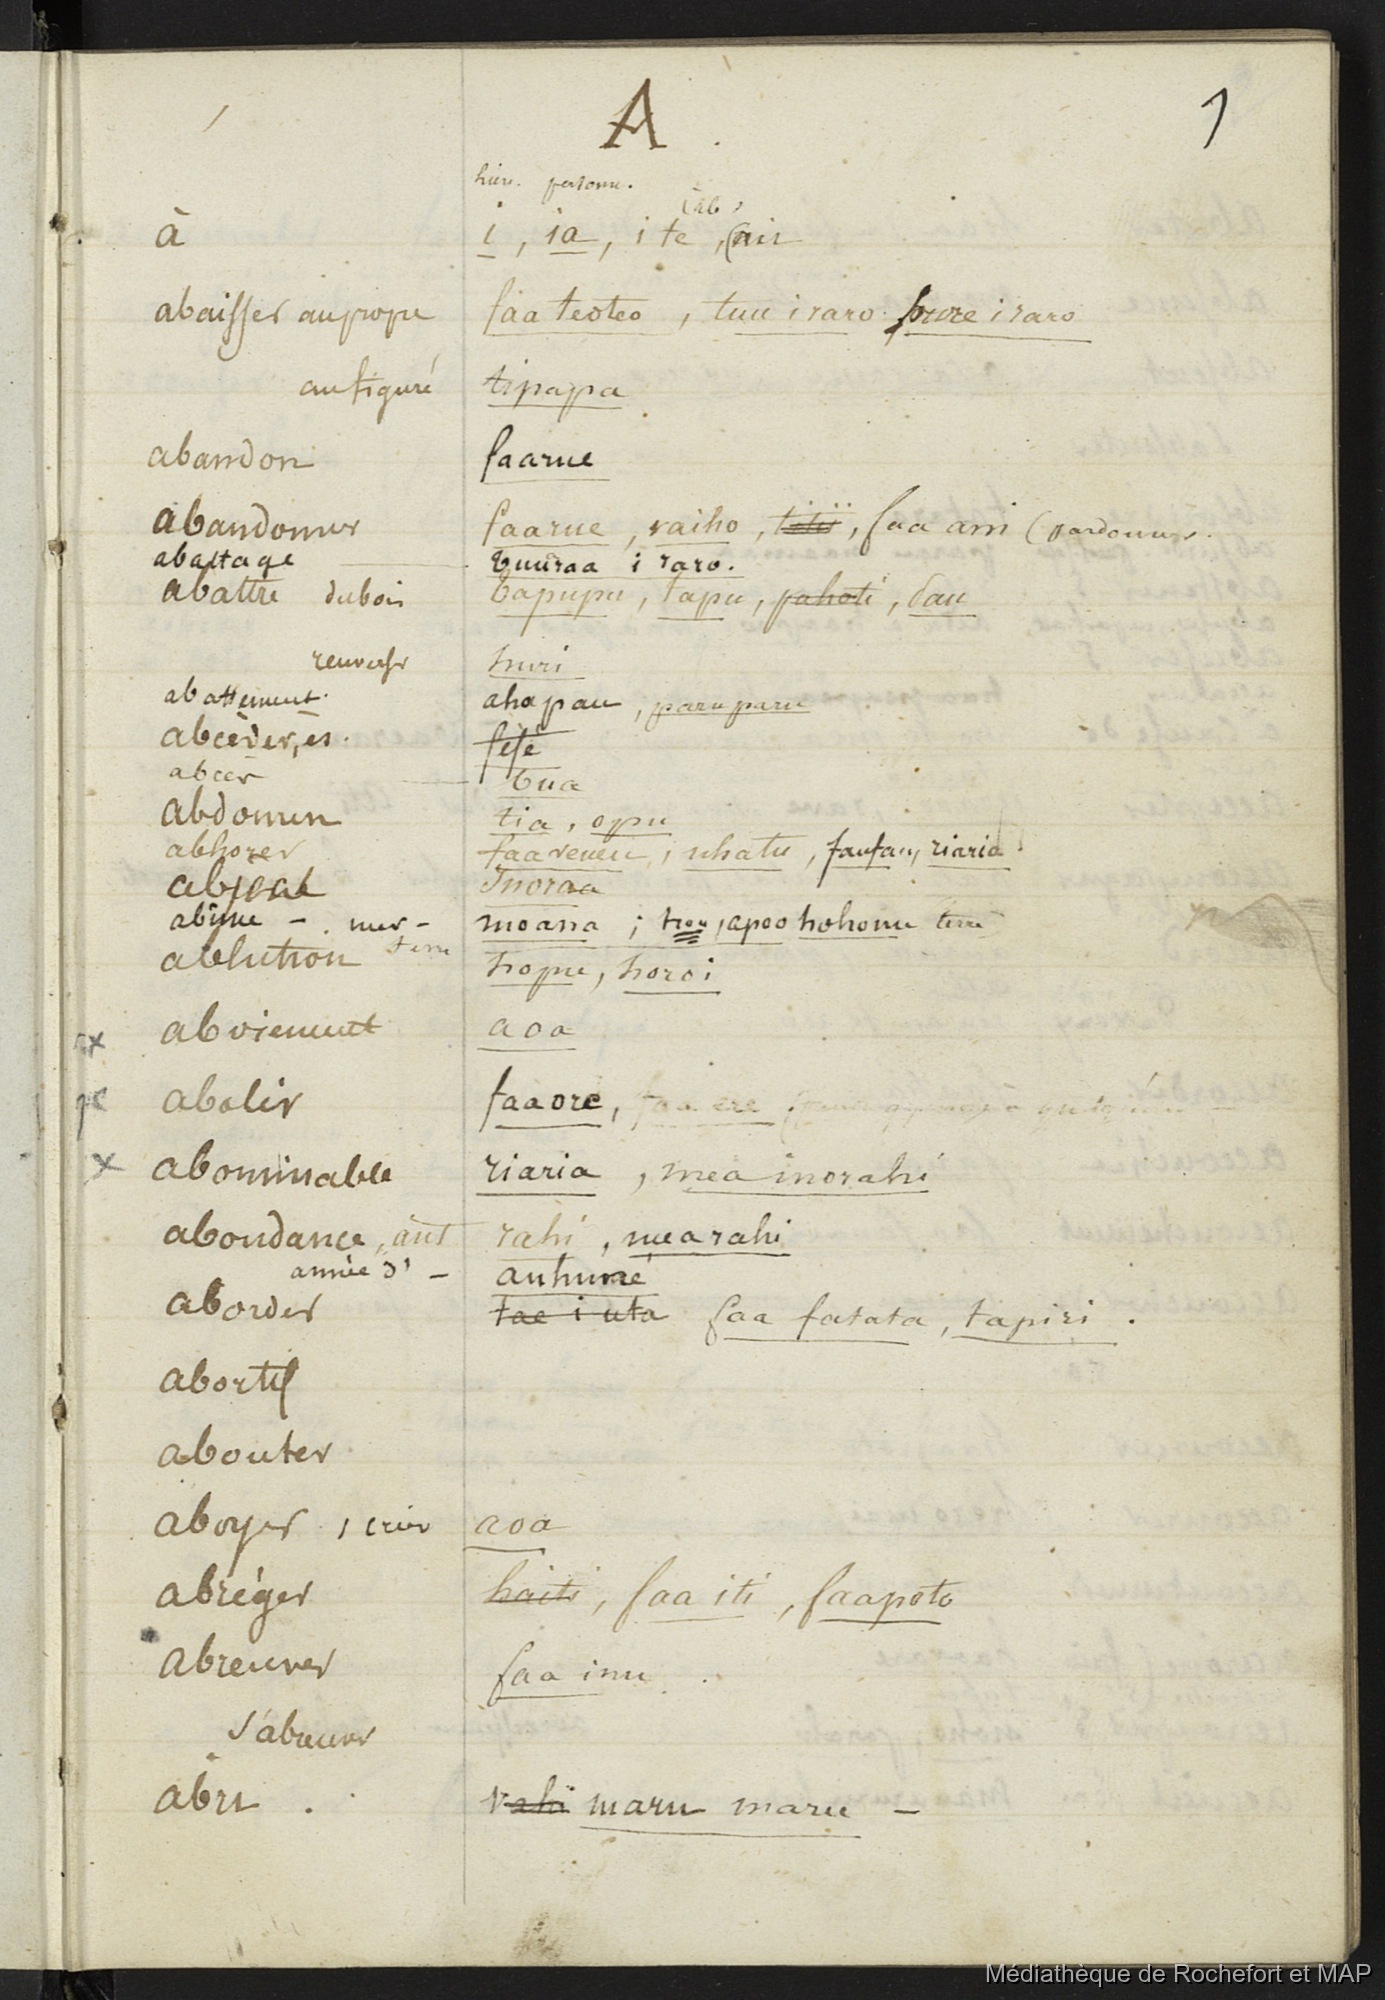 A
1
à i, ia, i te,
abaisser au propre faa teoteo, tuu i raro i raro
au figuré tipapa
abandon faarue
abandonner faarue, vaiho, titii, faa ani (pardonner.
abattage tuuraa i raro.
abattre du bois tapupu, tapu, pahoti,
renverser huri
abattement. ahopau, paruparu
abcéder, és. fefe
abcès bua
abdomen tia, opu
abhorer faarueue, uhatu, faufau, riaria
inoraa
abîme - mer - moana; trou, apoo hohonu terre
terre
ablution hopu, horoi
aboiement aoa
abolir faaore, faa ere
x abominable riaria, mea inorahi
abondance, ant rahi, mea rahi
année d' - auhune
aborder tae i uta faa fatata, tapiri.
abortif
abouter
aboyer, crier aoa
abréger haiti, faa iti, faapoto
abreuver faa inu.
s'abreuver
abri. vahi maru maru -
Médiathèque de Rochefort et MAP